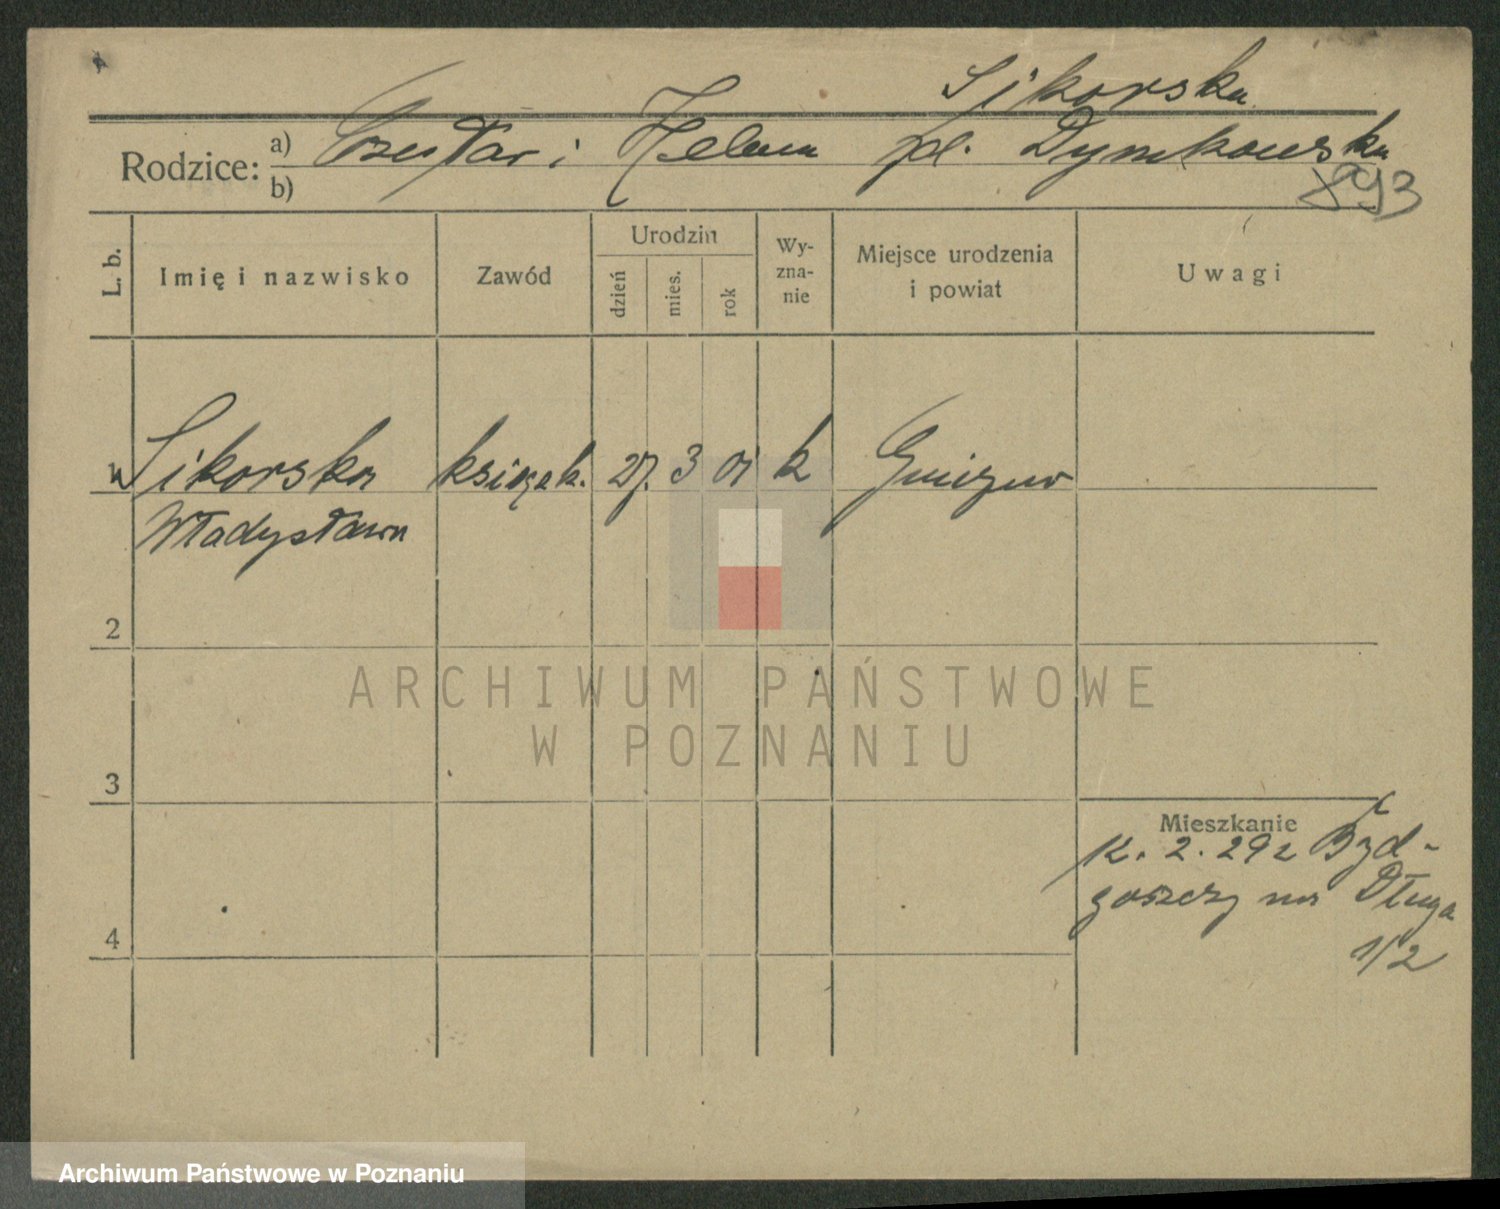 Sikorska
Rodzice: a) Czesław i Helena pł. Dymkowska
b)
893
L. b.
Imię i nazwisko
Zawód
Urodzin
dzień
mies.
rok
Wy-
zna-
nie
Miejsce urodzenia
i powiat
Uwagi
Sikorska książk. 27. 3 01 k
Władysława
2
ARCHIWUM PAŃSTWOWE
W POZNANIU
3
Mieszkanie
12. 2. 292 Byd-
goszcz na Długa
1/2
4
Archiwum Państwowe w Poznaniu